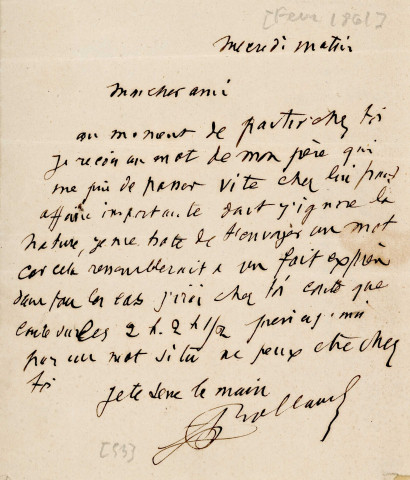 [Fevr 1861]
Mercredi matin
Mon cher ami
au moment de partir chez toi
je reçois un mot de mon père qui
me prie de passer vite chez lui pour
affaire importante dont j'ignore la
nature, je me hate de t'envoyer un mot
car cela ressemblerait a un fait exprès
dans tous les cas j'irai chez toi coute que
coute vers les 2 h. 2 h 1/2 préviens-moi
par un mot si tu ne peux etre chez
toi
je te serre la main
[53]